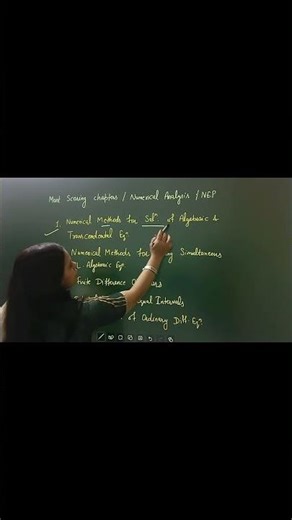 Most Scoring chapters / Numerical Analysis / NEP
1. Numerical Methods for Solⁿ. of Algebraic &
Transcendental Eqⁿ
Numerical Methods For Simultaneous
L. Algebraic Eqⁿ
Finite Difference
Intervals
of Ordinary Diff. Eqⁿ.